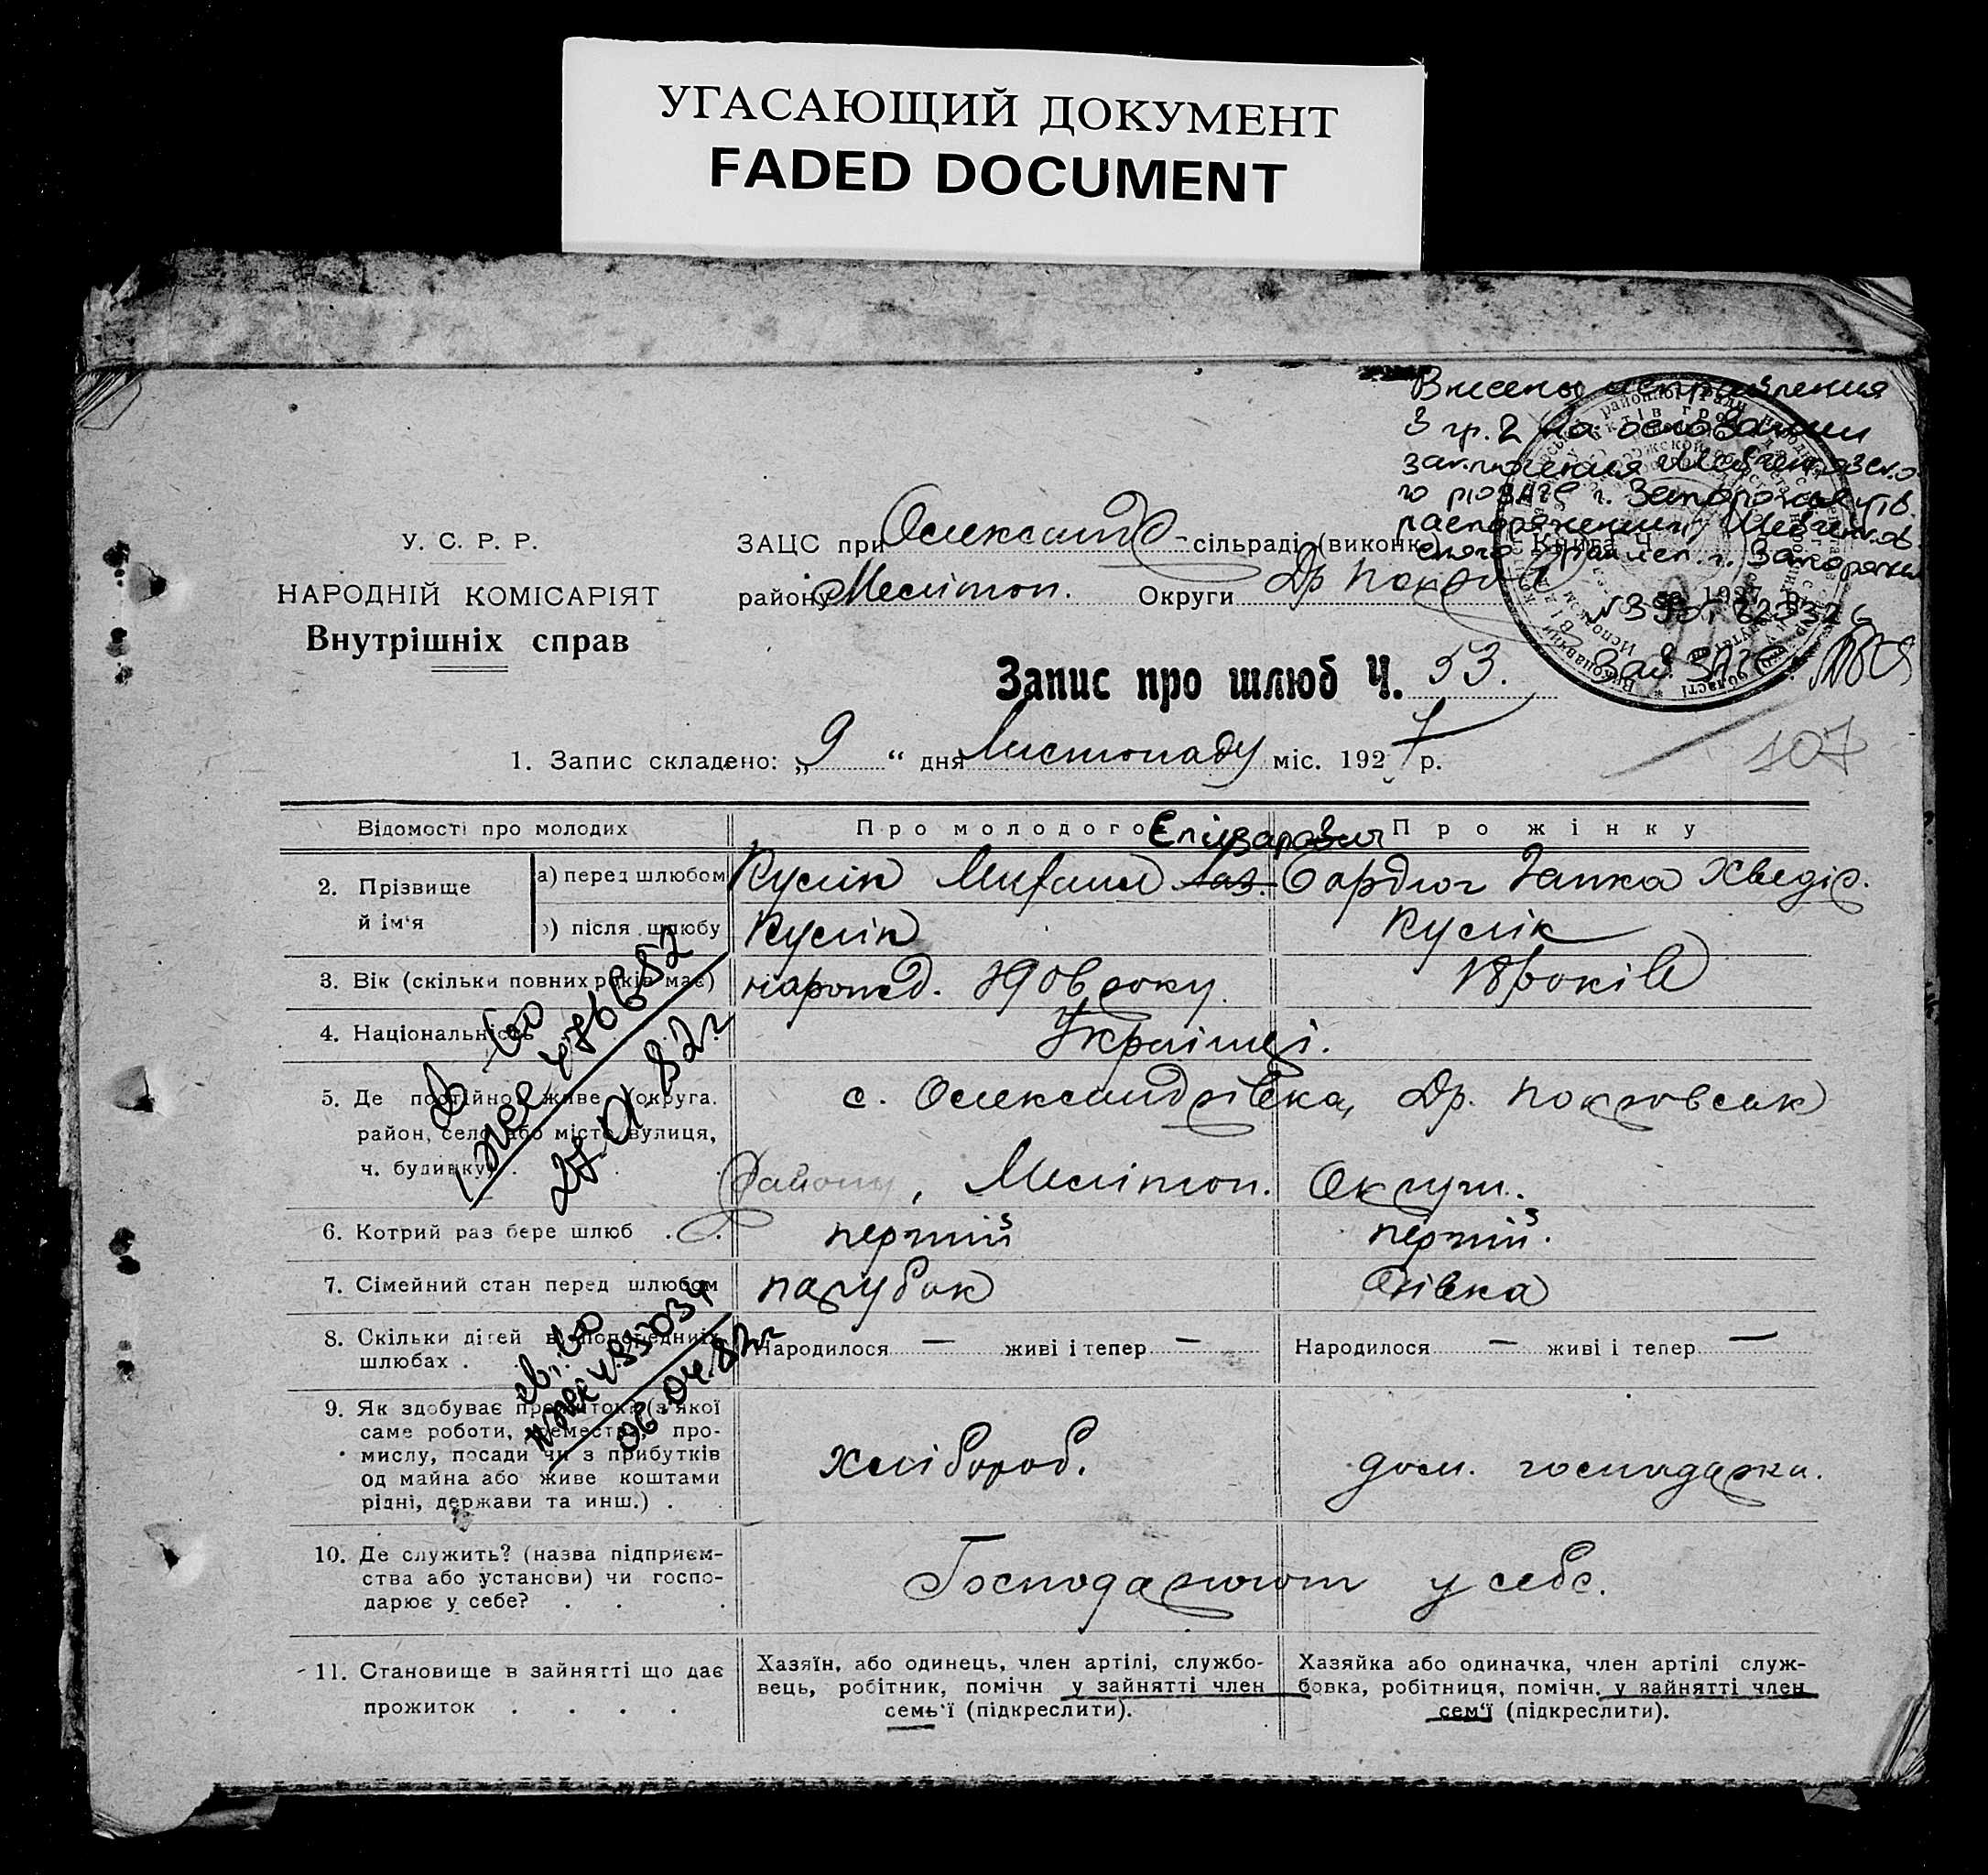 УГАСАЮЩИЙ ДОКУМЕНТ
FADED DOCUMENT
Внесены исправления
в гр. 2 на основании
заключения Шевченковско
го рЗАГС г. Запорожья утв.
распоряжением Шевченков
ского райисп. г. Запорожья
Зав. ЗАГС
У. С. Р. Р.
НАРОДНІЙ КОМІСАРІЯТ
Внутрішніх справ
ЗАЦС при Олександр- сільраді (виконк.) Книга Ч.
району Мелітоп. Округи
Запис про шлюб Ч. 53.
107
1. Запис складено: „9“ дня Листопаду міс. 1927 р.
Відомості про молодих Про молодого Про жінку
Єлізарович
2. Прізвище й ім'я
а) перед шлюбом Кулік Михаил Лаз. Бардюг Ганка Хведір.
б) після шлюбу Кулік Кулік
3. Вік (скільки повних років має) народ. 1906 року. 18 років
4. Національність Українці.
5. Де постійно живе (округа. с. Олександрівка, Др. Покровськ
район, село або місто, вулиця,
ч. будинку) Району, Мелітоп. Округи.
6. Котрий раз бере шлюб перший перший.
7. Сімейний стан перед шлюбом парубок дівка
8. Скільки дітей в попередніх Народилося — живі і тепер — Народилося — живі і тепер —
шлюбах .
9. Як здобуває прожиток (з якої
саме роботи, ремества, про-
мислу, посади чи з прибутків хлібороб. дом. господарка.
од майна або живе коштами
рідні, держави та инш.) .
10. Де служить? (назва підприєм-
ства або установи) чи госпо- Господарюют у себе.
дарює у себе? . . .
11. Становище в зайнятті що дає
прожиток . . . .
Хазяїн, або одинець, член артілі, службо-
вець, робітник, помічн. у зайнятті член
семь'ї (підкреслити).
Хазяйка або одиначка, член артілі служ-
бовка, робітниця, помічн. у зайнятті член
сем'ї (підкреслити).
06.04.82г